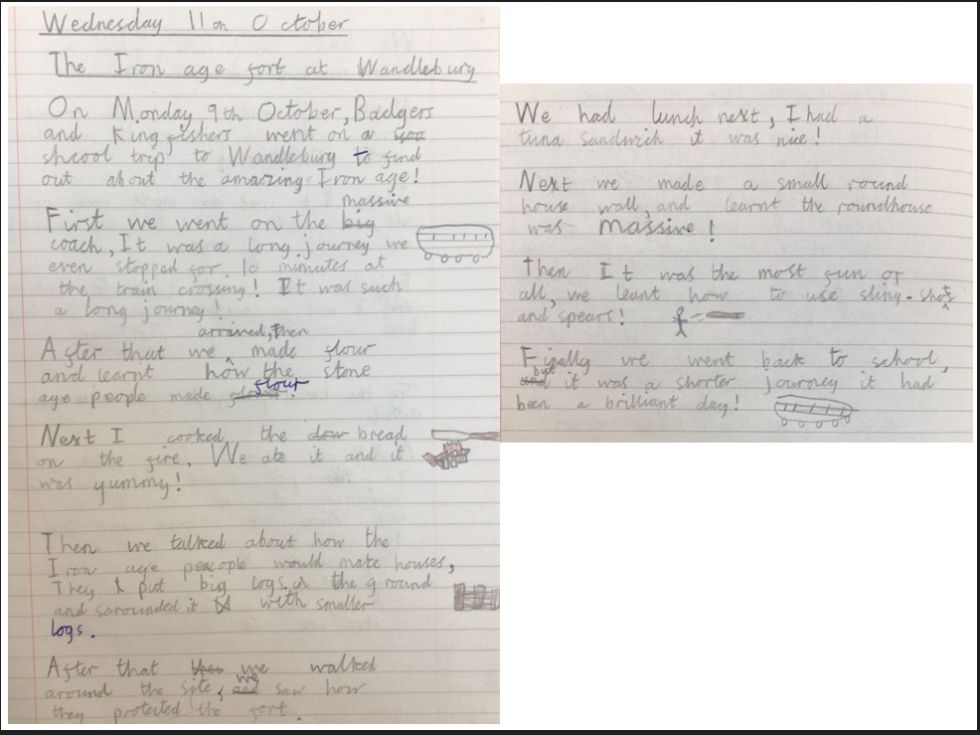 Wednesday 11on October
The Iron age fort at Wandlebury
On Monday 9th October, Badgers
and Kingfishers went on a
shcool trip to Wandlebury to find
out about the amazing Iron age!
massive
First we went on the big
coach, It was a long journey we
even stopped for 10 minutes at
the train crossing! It was such
a long journey!
arrived, then
After that we ^ made flour
and learnt how the stone
age people made flour!
Next I cooked the dow bread
on the fire. We ate it and it
was yummy!
Then we talked about how the
Iron age peaople would mate houses,
They put big logs in the ground
and sorounded it with smaller
logs.
After that we walked
we
around the site, and saw how
they protected the fort.
We had lunch next, I had a
tuna sandwich it was nice!
Next we made a small round
house wall, and learnt the roundhouse
was massive!
Then It was the most fun of
all, we leant how to use sling-shots
and spears!
Finally we went back to school,
but
and it was a shorter journey it had
been a brilliant day!